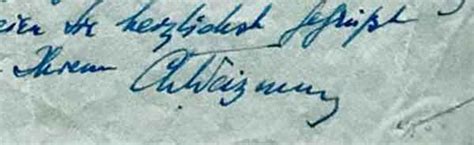 Sie herzlichst gegrüßt
Ihrem ChWeizmann